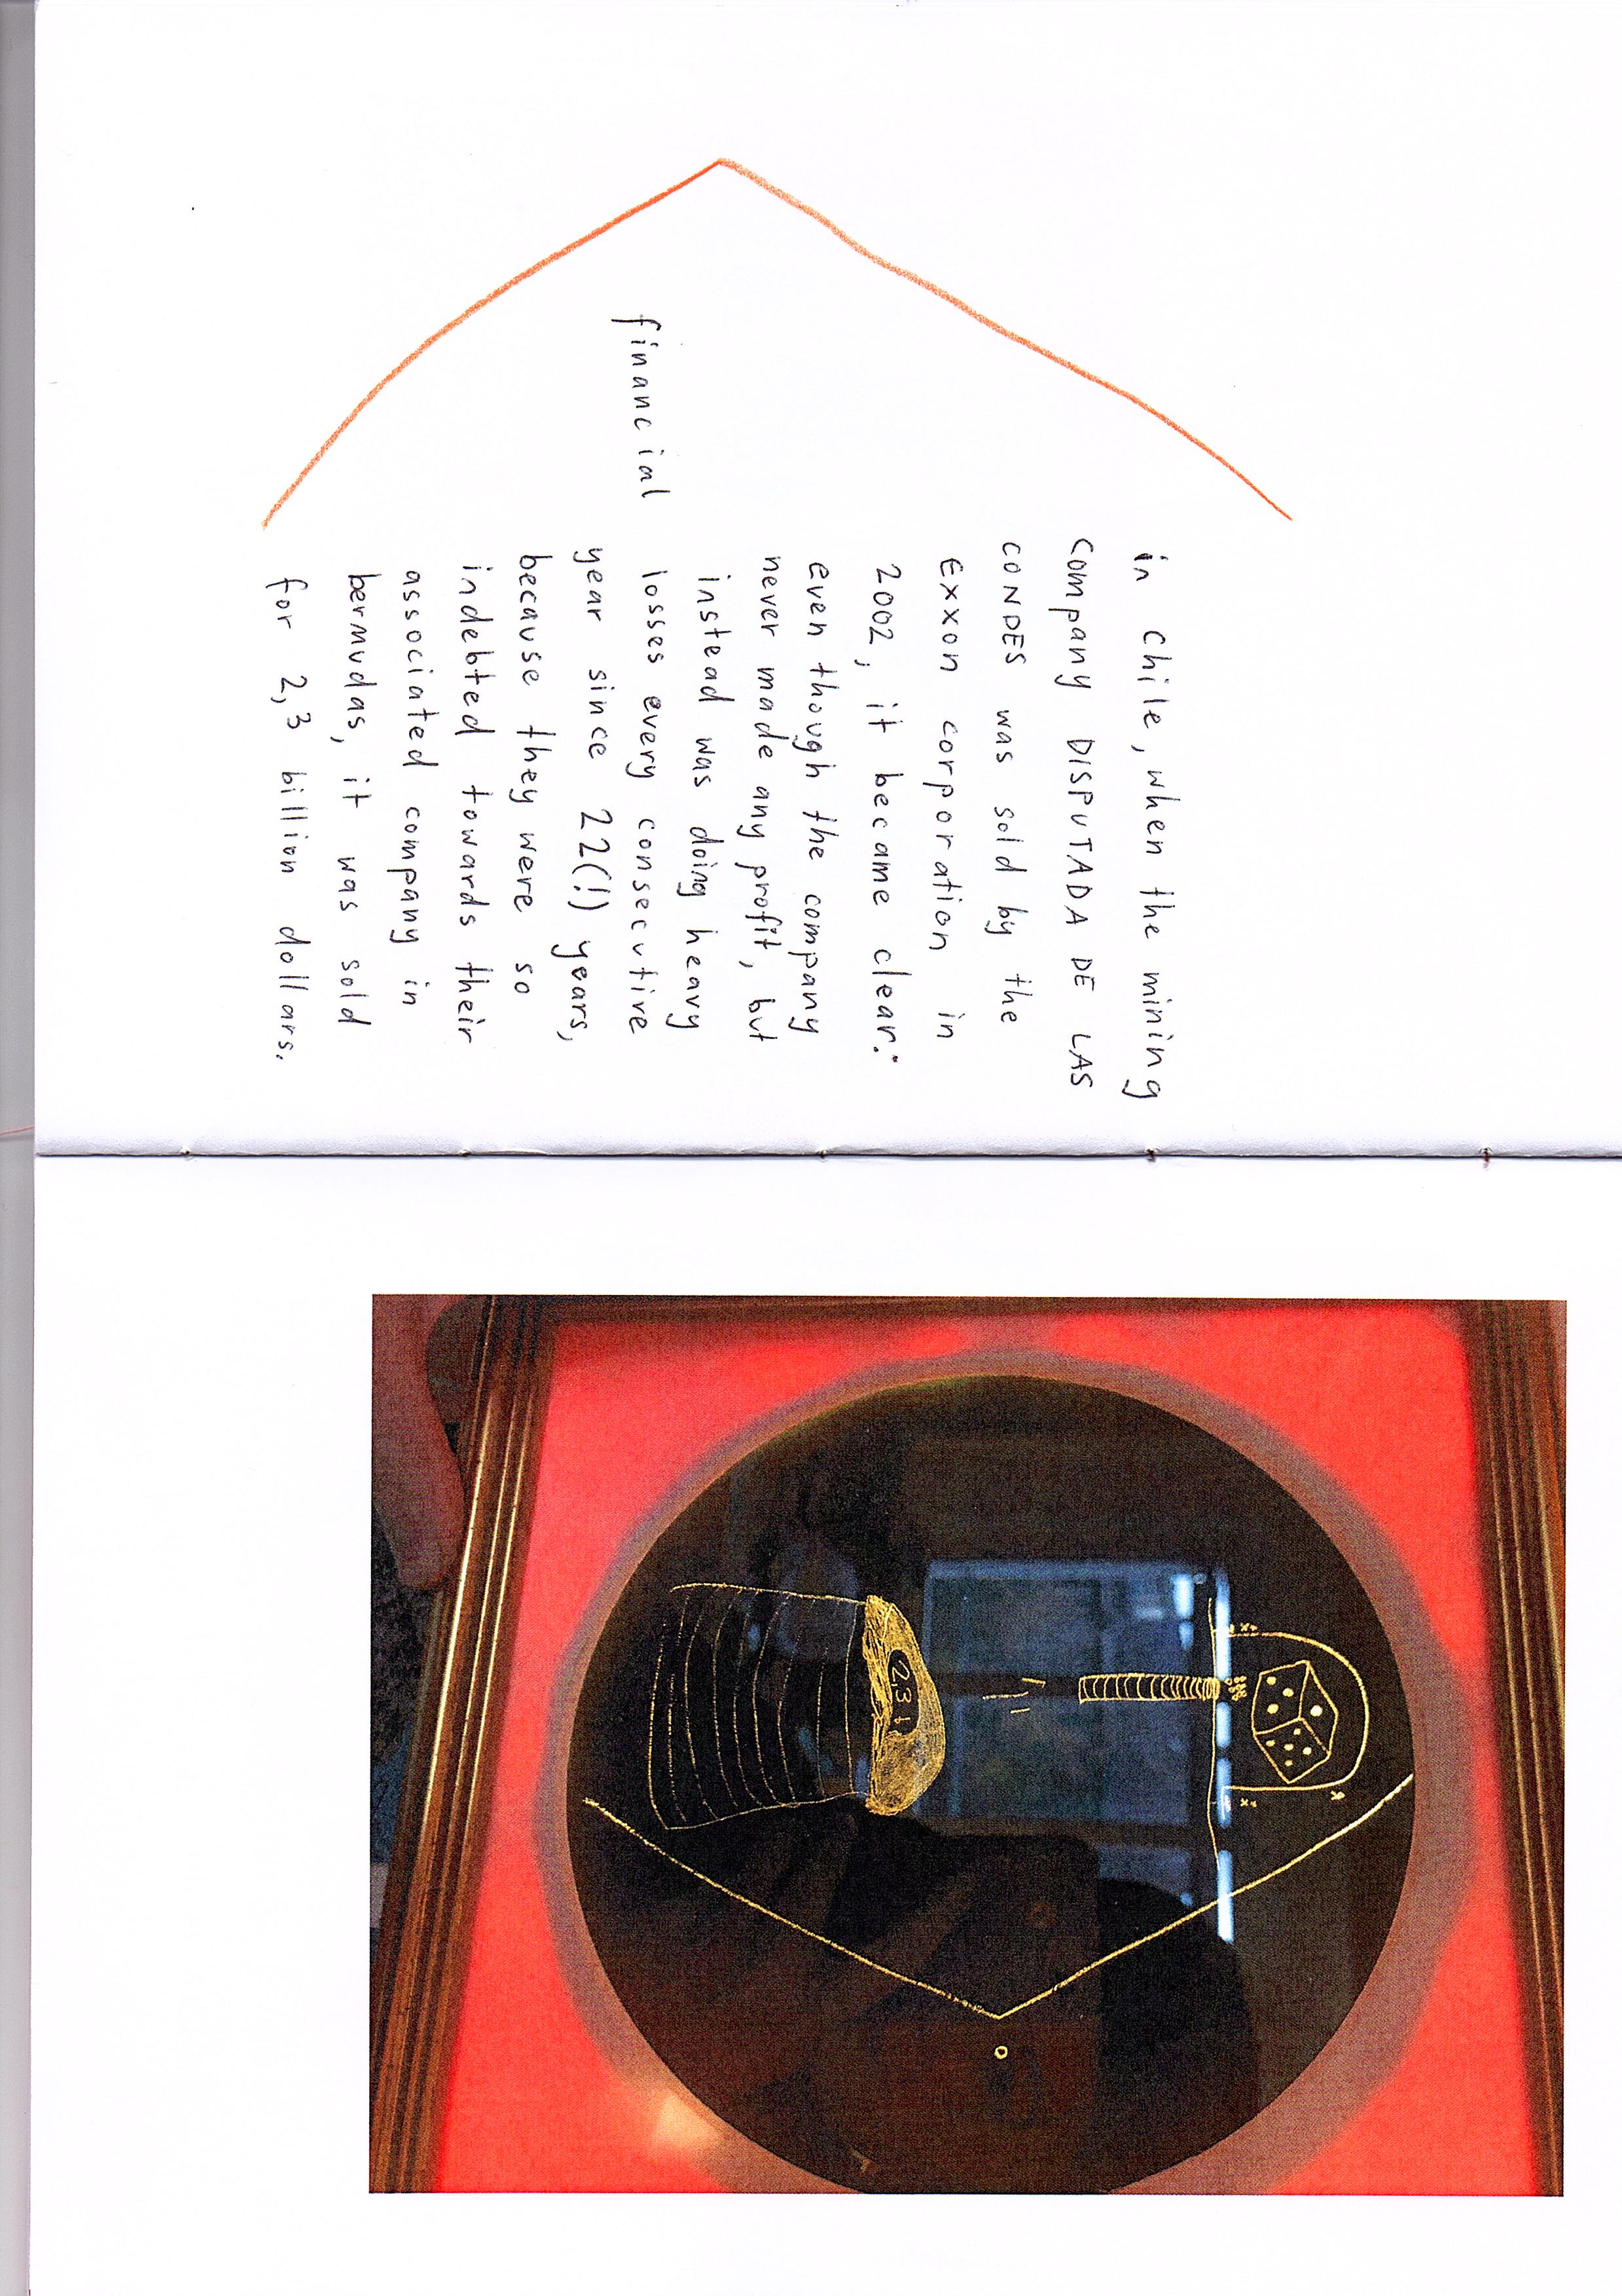 in Chile, when the mining
company DISPUTADA DE LAS
CONDES was sold by the
Exxon corporation in
2002, it became clear:
even though the company
never made any profit, but
instead was doing heavy
financial losses every consecutive
year since 22(!) years,
because they were so
indebted towards their
associated company in
bermudas, it was sold
for 2,3 billion dollars.
2,3